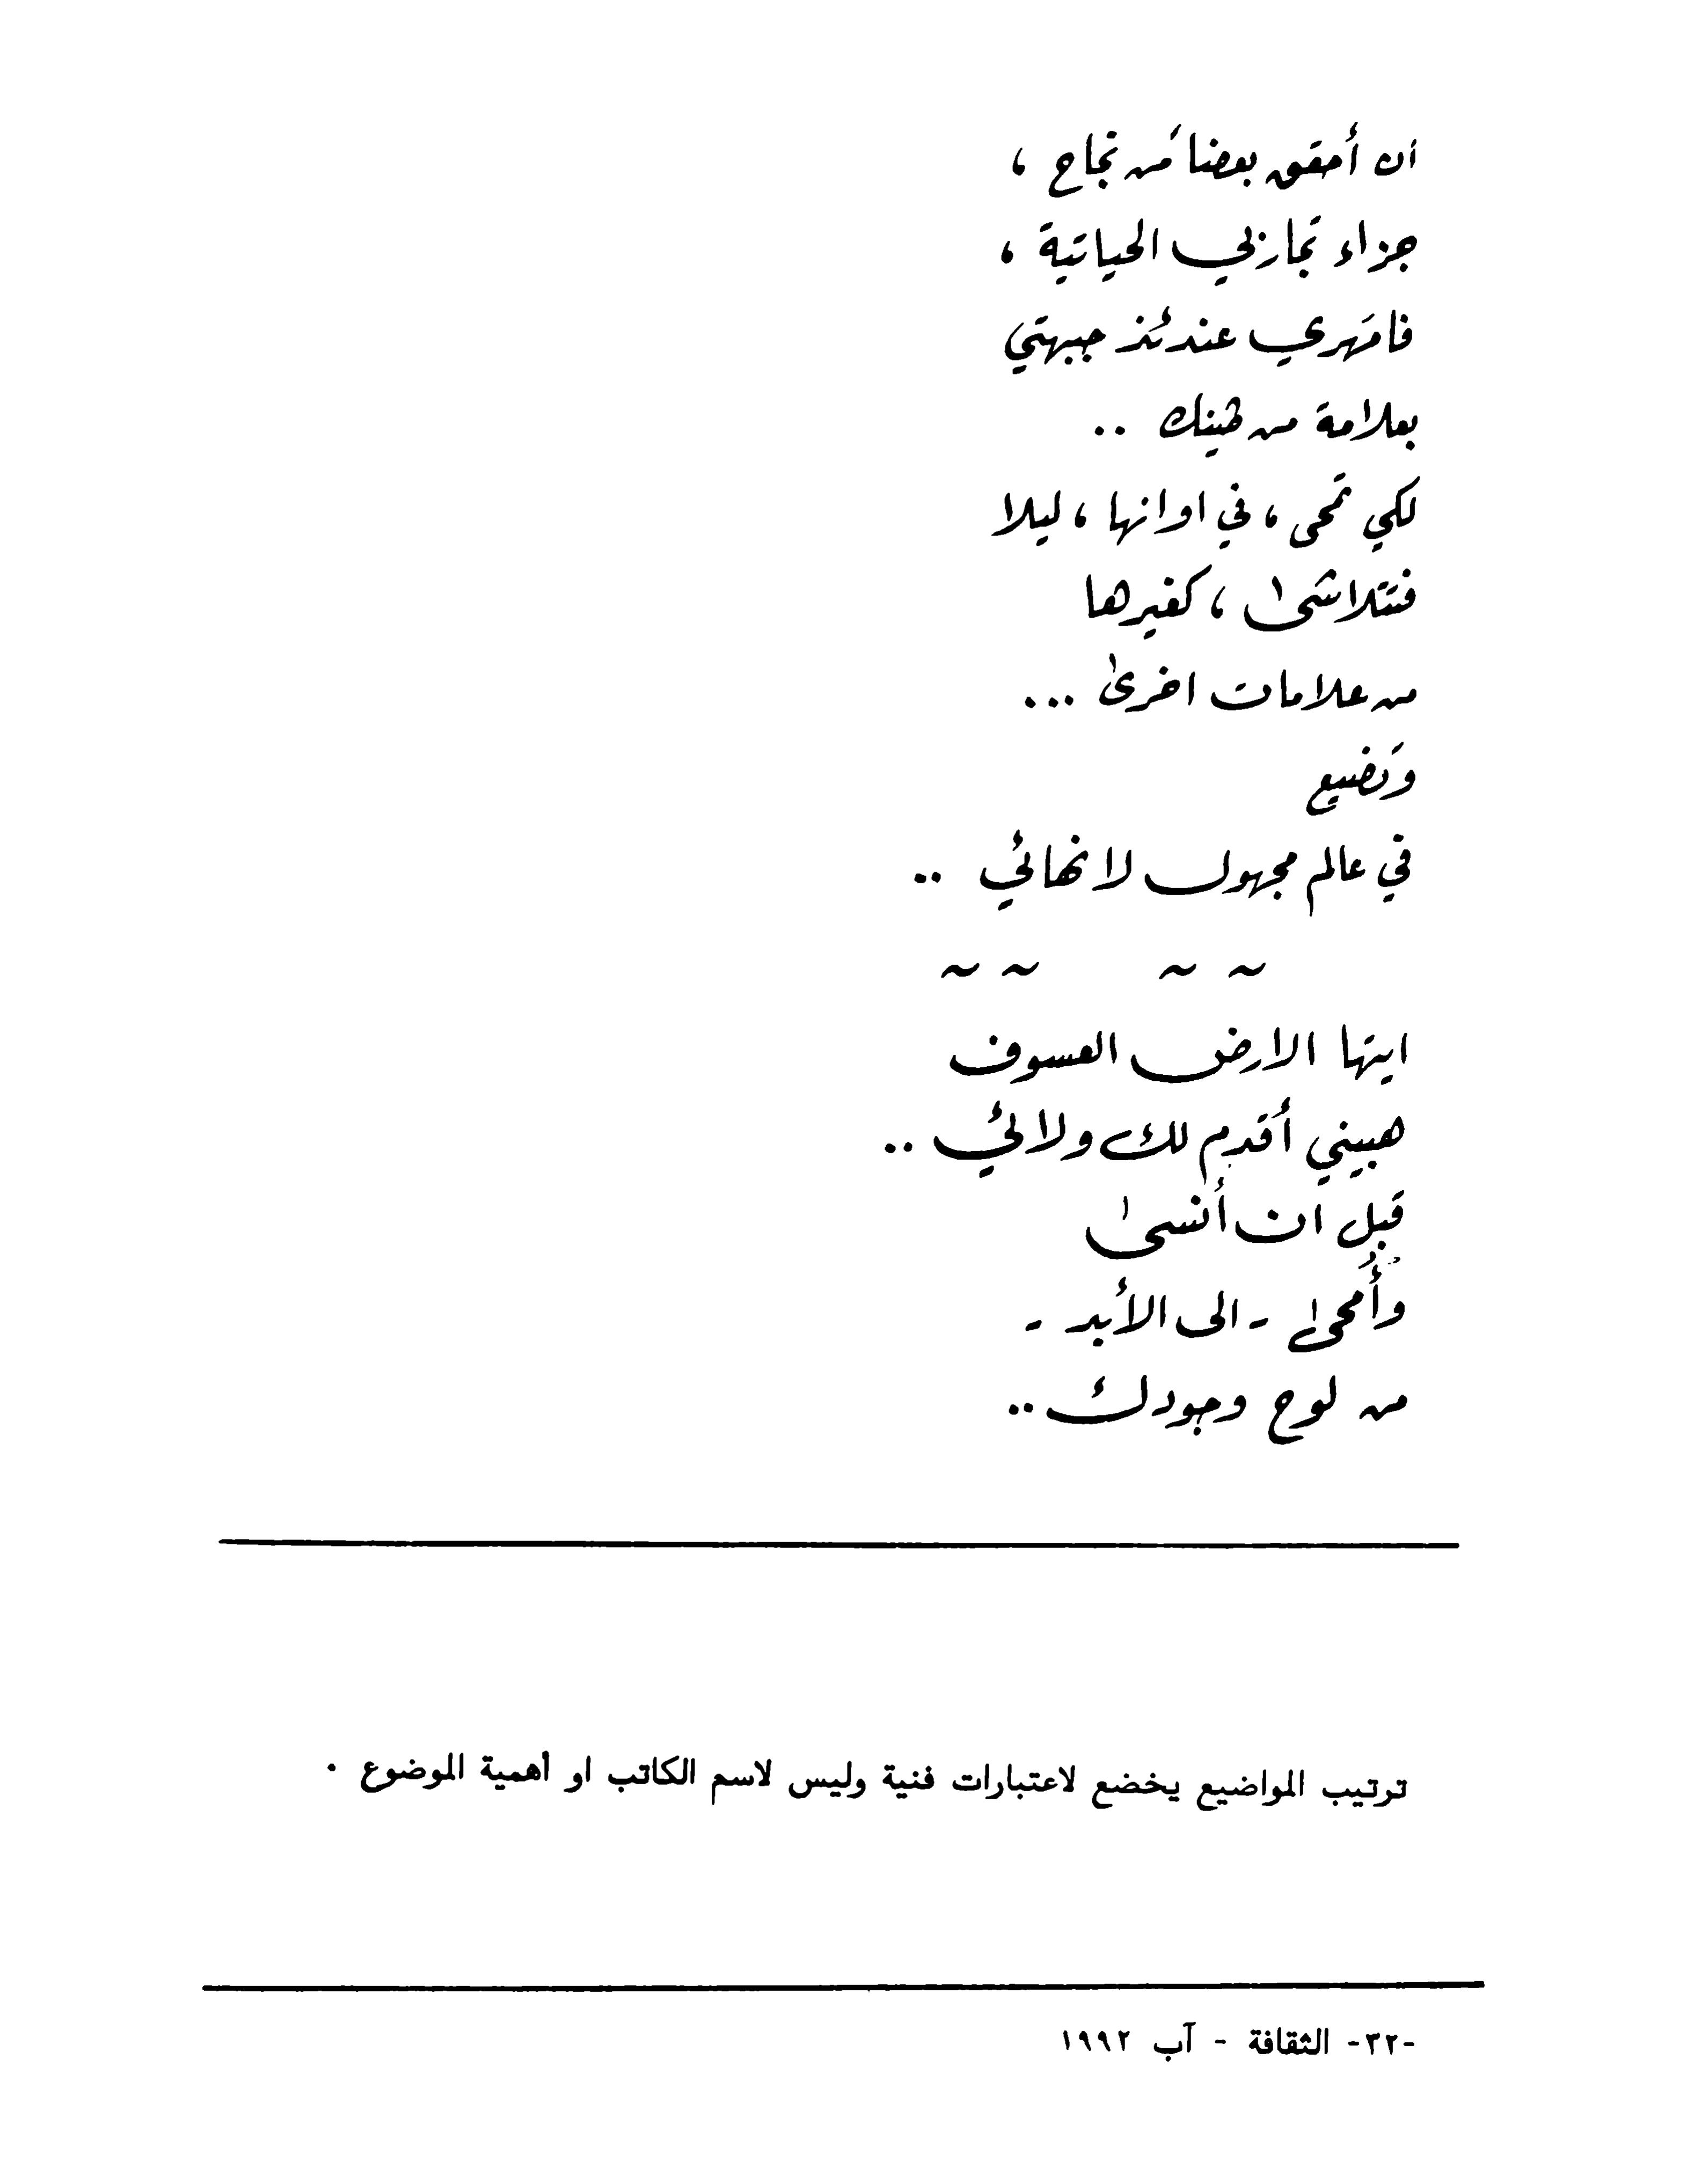 أن أحقق بعضاً من نجاح ،
جزاء تجاربي الحياتية ،
فامهري عندئذ جبهتي
بعلامة من طينك ..
لكي تمحى ، في اوانها ، ليلا
فتتلاشى ، كغيرها
من علامات اخرى ...
وتضيع
في عالم مجهول لا نهائي ..
~ ~ ~ ~
ايتها الارض العسوف
هبيني أقدم لك ولائي ..
قبل ان أنسى
وأُمحى - الى الأبد -
من لوح وجودك ..
ترتيب المواضيع يخضع لاعتبارات فنية وليس لاسم الكاتب او أهمية الموضوع .
-٣٢- الثقافة - آب ١٩٩٢